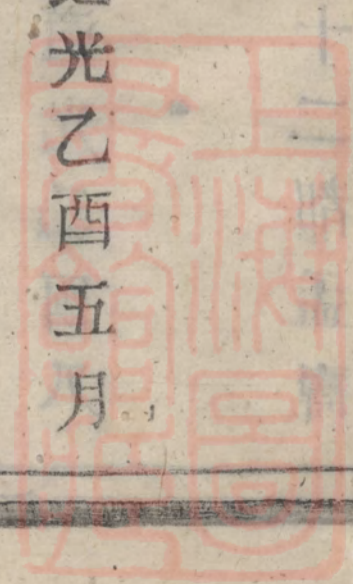 光乙酉五月
上海圖書館藏